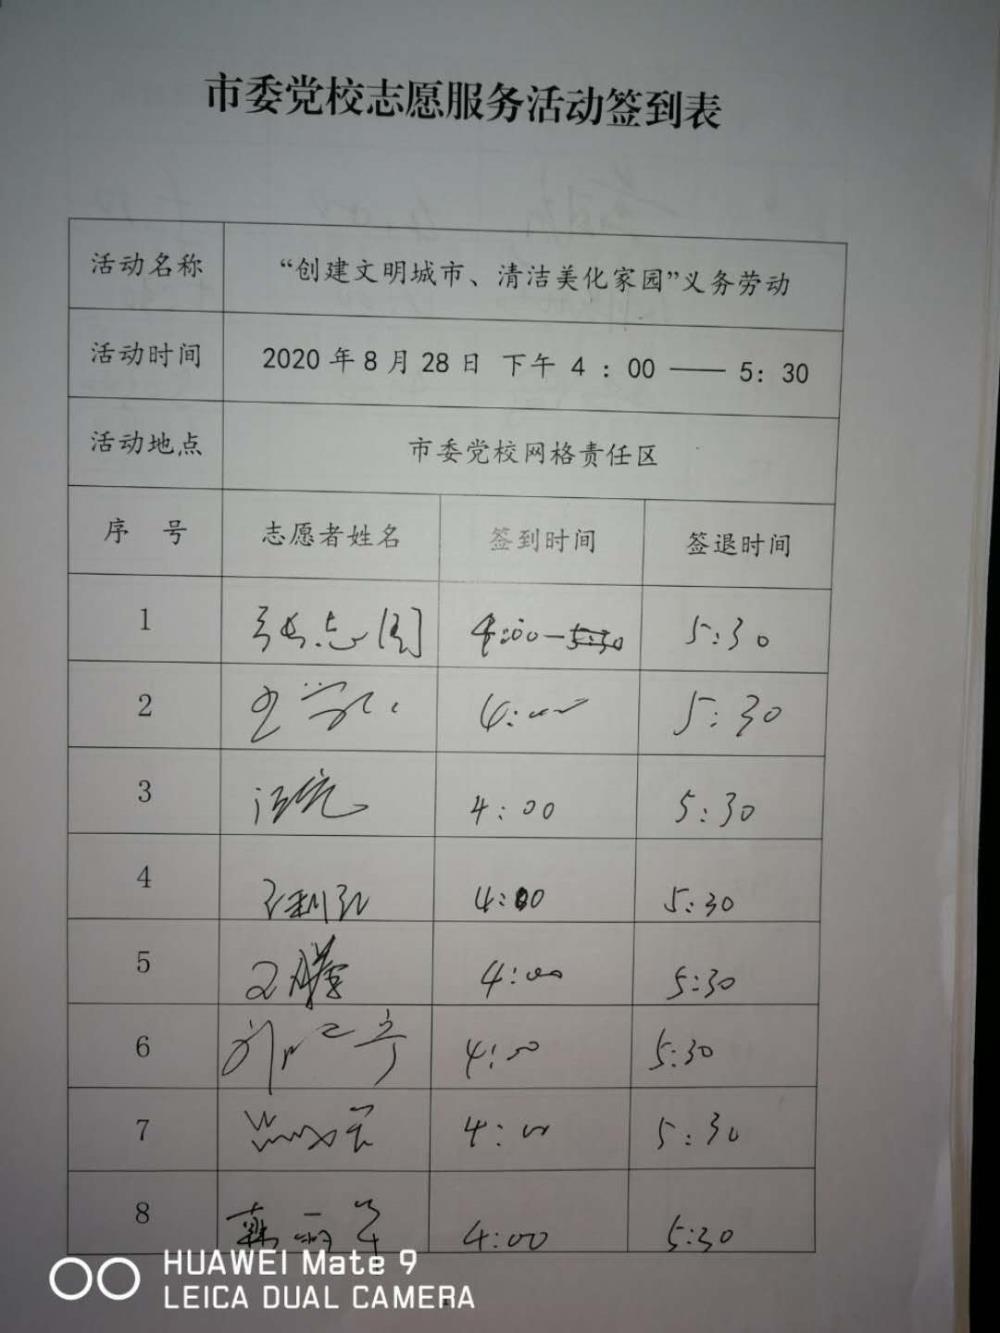 市委党校志愿服务活动签到表
活动名称 “创建文明城市、清洁美化家园”义务劳动
活动时间 2020年8月28日 下午 4 : 00 —— 5: 30
活动地点 市委党校网格责任区
序 号 志愿者姓名 签到时间 签退时间
1 张志国 4:00 5:30
2 4:00 5:30
3 4:00 5:30
4 4:00 5:30
5 王 4:00 5:30
6 4:00 5:30
7 4:00 5:30
8 4:00 5:30
HUAWEI Mate 9
LEICA DUAL CAMERA